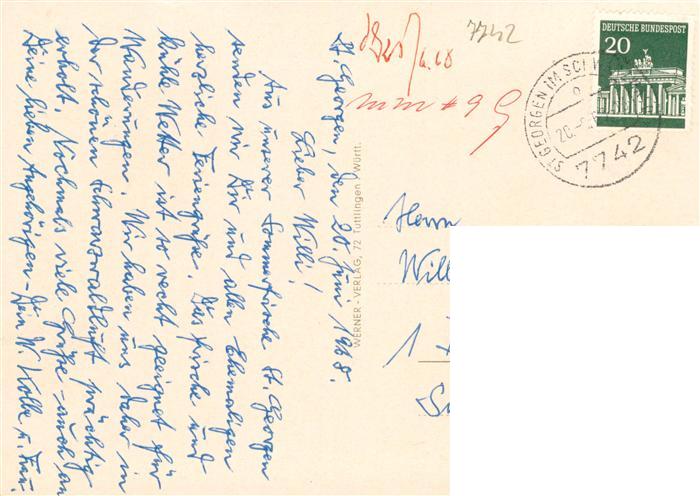 St. Georgen, den 20. Juni 1968.
Lieber Willi!
Aus unserer Sommerfrische St. Georgen
senden wir Dir und allen Ehemaligen
herzliche Feriengrüße. Das frische und
kühle Wetter ist so recht geeignet für
Wanderungen. Wir haben uns daher in
der schönen Schwarzwaldluft prächtig
erholt. Nochmals viele Grüße - auch an
Deine lieben Angehörigen - Dein W. Kolbe u. Frau.
WERNER - VERLAG, 72 Tuttlingen / Württ.
7742
DEUTSCHE BUNDESPOST
20
ST GEORGEN IM SCHW
20.
7742
Herrn
Will
1